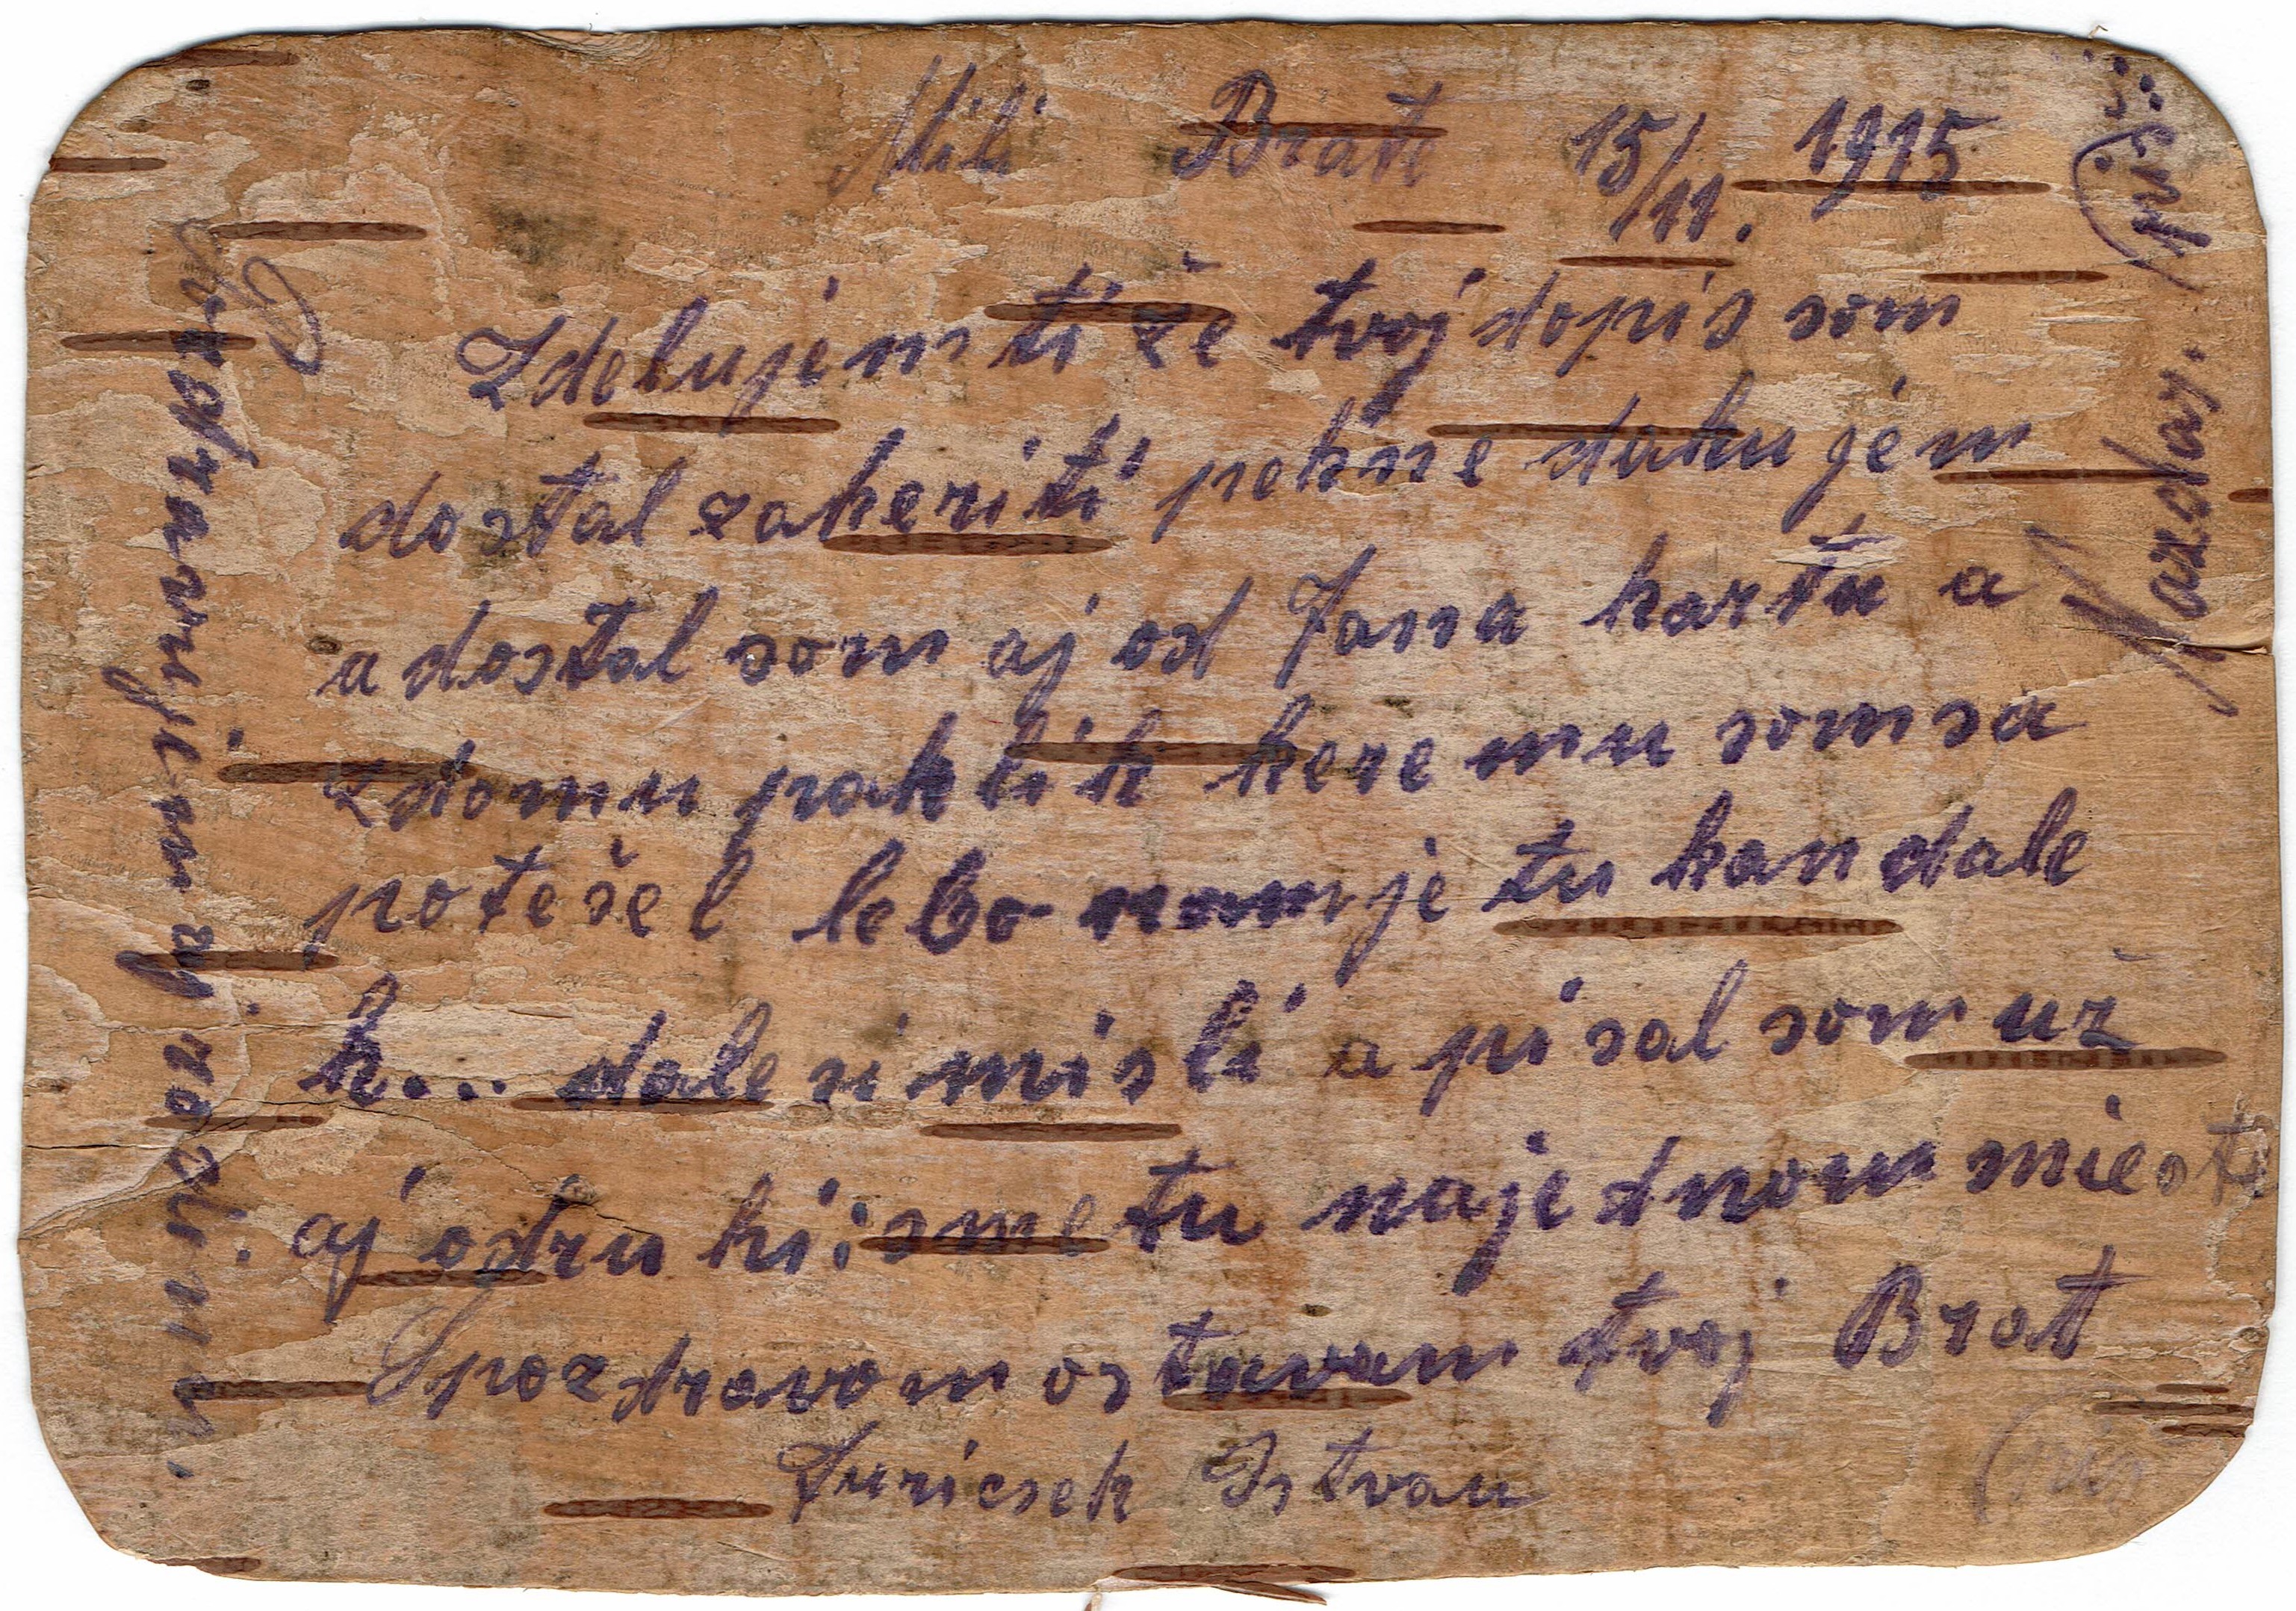 Mili Bratt 15/11. 1915
Zdelujem ti že tvoj dopis som
dostal zakeri ti pekne dakujem
a dostal som aj od Jana kartu a
zdomu paklik keremu som sa
potešel lebo nam je tu kandale
k... dale si misli a pisal som už
aj odruhi: sme tu najednom miest
Spozdravom ostavam tvoj Brat
Juricsek Istvan
Pozdravujem aj
Nazdar.